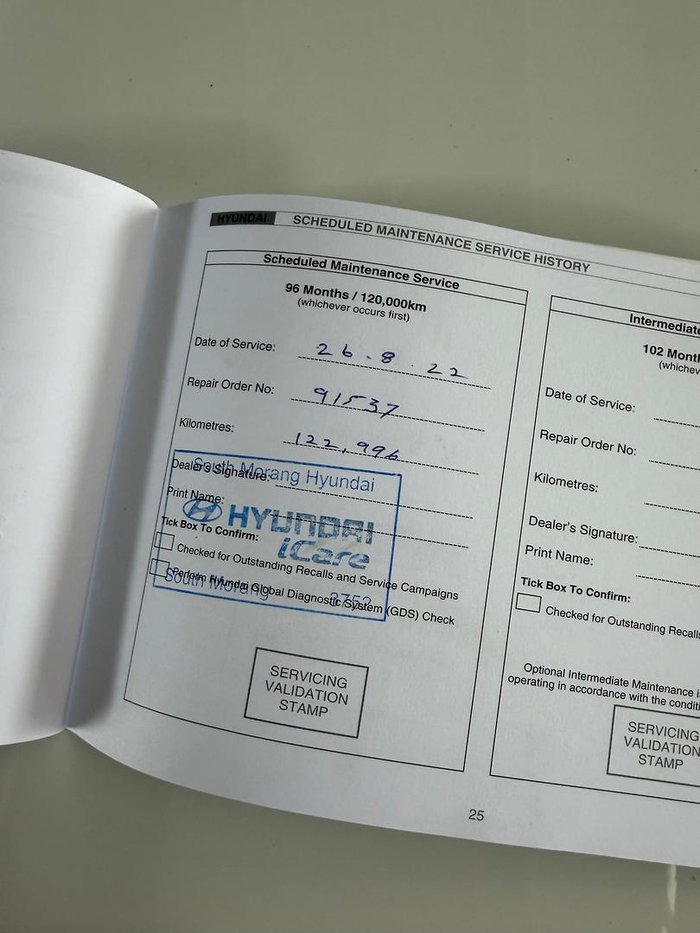 HYUNDAI SCHEDULED MAINTENANCE SERVICE HISTORY
Scheduled Maintenance Service
96 Months / 120,000km
(whichever occurs first)
Date of Service: 26.8.22
Repair Order No: 91537
Kilometres: 122,996
Dealer's Signature:
South Morang Hyundai
Print Name:
HYUNDAI
iCare
Tick Box To Confirm:
Checked for Outstanding Recalls and Service Campaigns
Perform Hyundai Global Diagnostic System (GDS) Check
South Morang 3752
SERVICING
VALIDATION
STAMP
Intermediate
102 Mont
(whichev
Date of Service:
Repair Order No:
Kilometres:
Dealer's Signature:
Print Name:
Tick Box To Confirm:
Checked for Outstanding Recalls
Optional Intermediate Maintenance i
operating in accordance with the condit
SERVICING
VALIDATION
STAMP
25